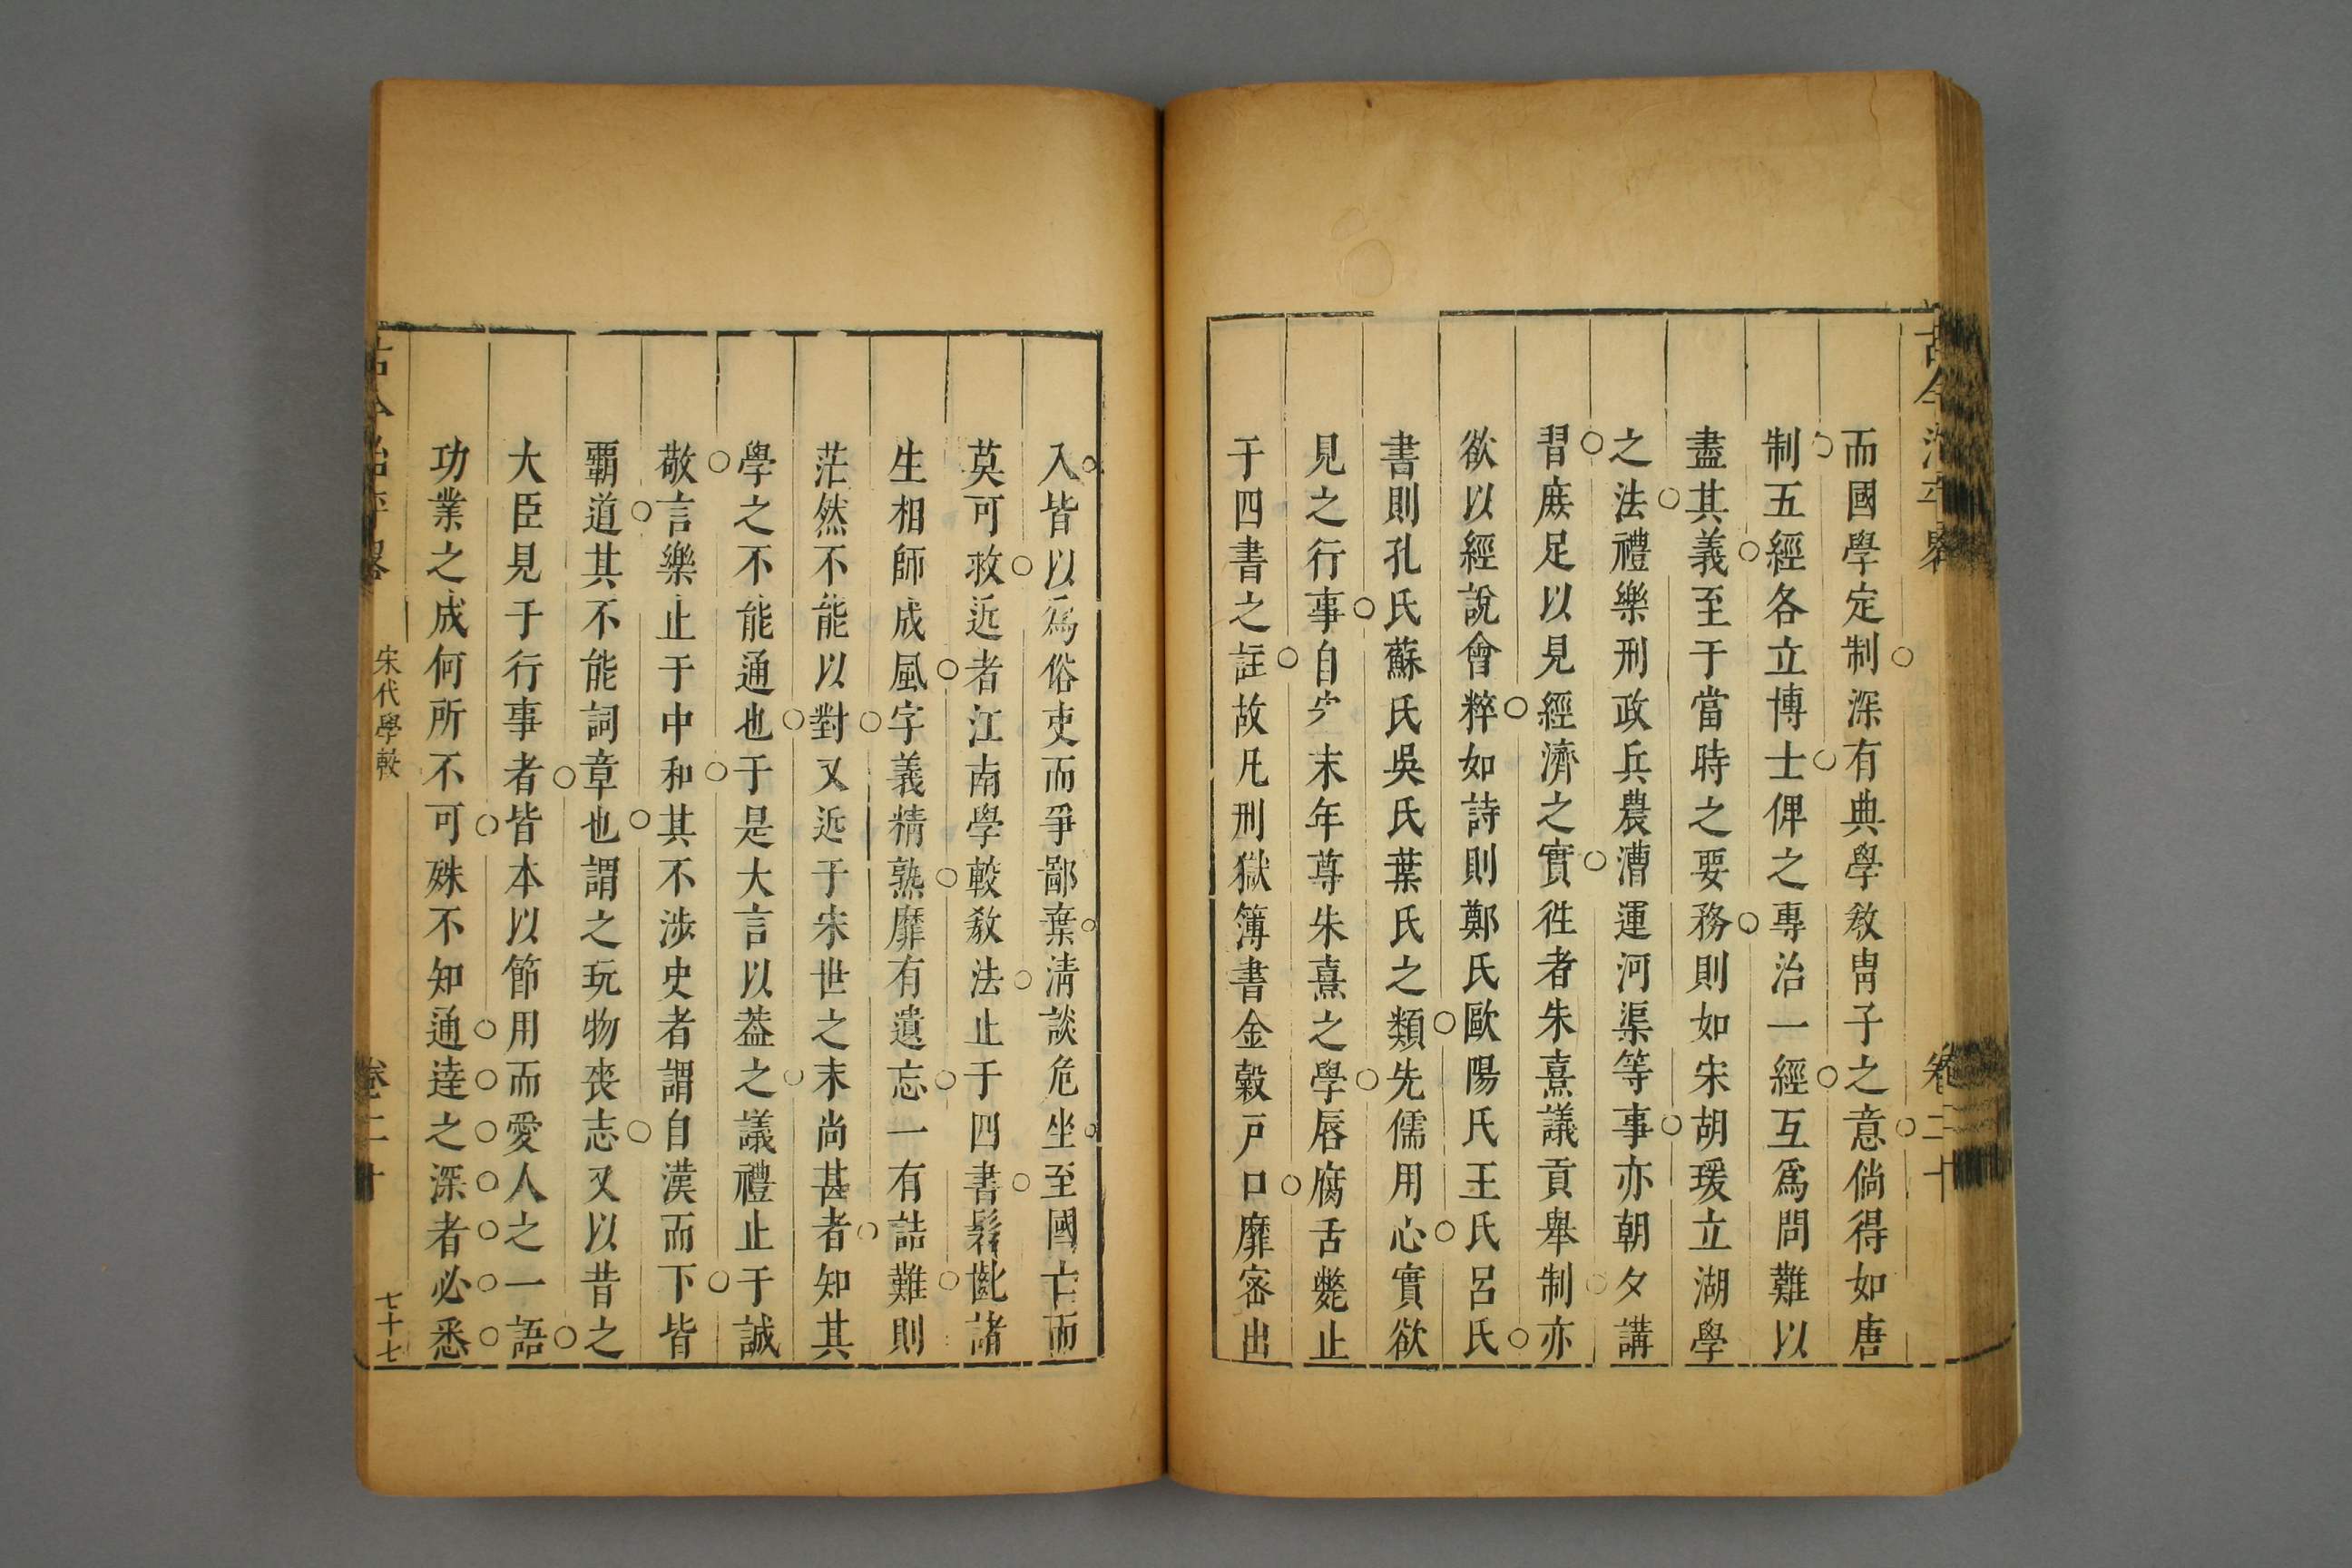 古今治平畧 卷二十
而國學定制深有典學敎冑子之意倘得如唐
制五經各立博士俾之專治一經互爲問難以
盡其義至于當時之要務則如宋胡瑗立湖學
之法禮樂刑政兵農漕運河渠等事亦朝夕講
習庶足以見經濟之實徃者朱熹議貢舉制亦
欲以經說會粹如詩則鄭氏歐陽氏王氏呂氏
書則孔氏蘇氏吳氏葉氏之類先儒用心實欲
見之行事自宋末年尊朱熹之學唇腐舌斃止
于四書之註故凡刑獄簿書金穀戸口靡宻出
入皆以爲俗吏而爭鄙棄淸談危坐至國亡而
莫可救近者江南學較敎法止于四書髫齓諸
生相師成風字義精熟靡有遺忘一有詰難則
茫然不能以對又近于宋世之末尚甚者知其
學之不能通也于是大言以葢之議禮止于誠
敬言樂止于中和其不涉史者謂自漢而下皆
覇道其不能詞章也謂之玩物喪志又以昔之
大臣見于行事者皆本以節用而愛人之一語
功業之成何所不可殊不知通逹之深者必悉
古今治平畧 宋代學較 卷二十 七十七